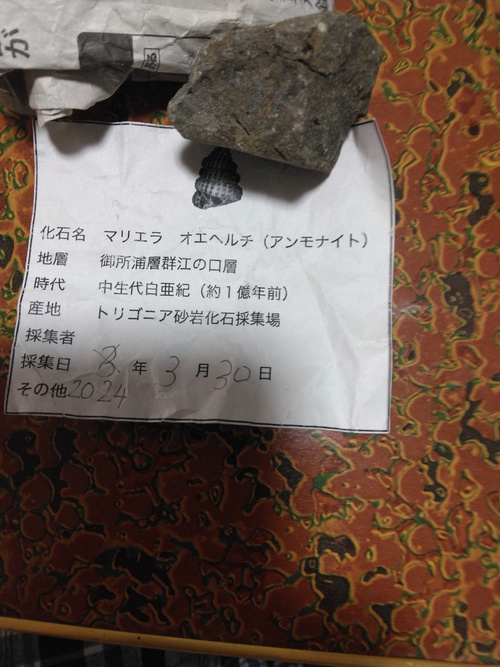 が
化石名 マリエラ オエヘルチ（アンモナイト）
地層 御所浦層群江の口層
時代 中生代白亜紀（約１億年前）
産地 トリゴニア砂岩化石採集場
採集者
採集日 年 3 月 30 日
その他 2024